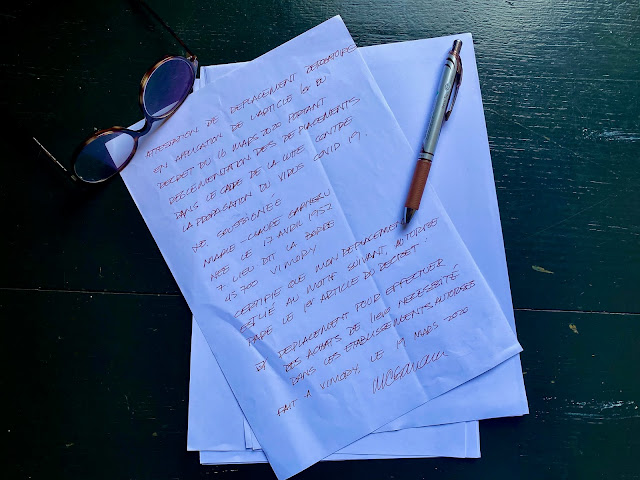 ATTESTATION DE DEPLACEMENT DEROGATOIRE
EN APPLICATION DE L'ARTICLE 1er DU
DECRET DU 16 MARS 2020 PORTANT
REGLEMENTATION DES DEPLACEMENTS
DANS LE CADRE DE LA LUTTE CONTRE
LA PROPAGATION DU VIRUS COVID 19.
JE SOUSSIGNÉE
MARIE-CLAUDE
NÉE LE 17 AVRIL 1952
7 LIEU DIT LA
45700 VIMORY
CERTIFIE QUE MON DEPLACEMENT
EST LIÉ AU MOTIF SUIVANT, AUTORISÉ
PAR LE 1er ARTICLE DU DECRET:
DEPLACEMENT POUR EFFECTUER
DES ACHATS DE 1ère NECESSITÉ
DANS LES ETABLISSEMENTS AUTORISES
FAIT A VIMORY LE 19 MARS 2020